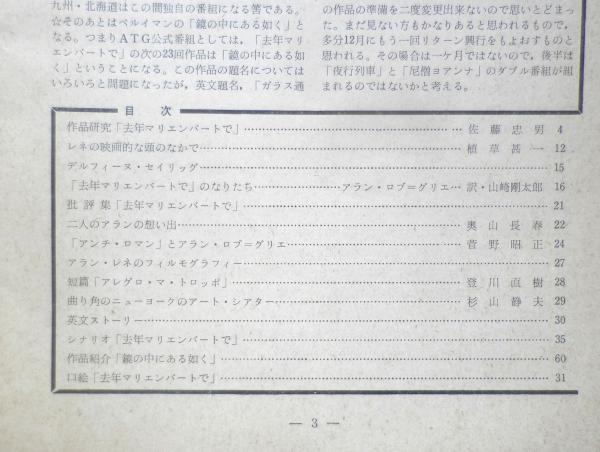 九州・北海道はこの間独自の番組になる筈である。
☆そのあとはベルイマンの「鏡の中にある如く」と
なる。つまりＡＴＧ公式番組としては，「去年マリ
エンバートで」の次の23回作品は「鏡の中にある如
く」ということになる。この作品の題名については
いろいろと問題になったが，英文題名，「ガラス通
の作品の準備を二度変更出来ないので思いとどまっ
た。まだ見ない方もかなりあると思われるもので，
多分12月にもう一回リターン興行をもよおすものと
思われる。その場合は一ケ月ではないので，後半は
「夜行列車」と「尼僧ヨアンナ」のダブル番組が組
まれるのではないかと考える。
目次
作品研究「去年マリエンバートで」……………佐藤忠男 4
レネの映画的な頭のなかで……………植草甚一 12
デルフィーヌ・セイリッグ……………15
「去年マリエンバートで」のなりたち……………アラン・ロブ＝グリエ…訳・山崎剛太郎 16
批評集「去年マリエンバートで」……………21
二人のアランの想い出……………奥山長春 22
「アンチ・ロマン」とアラン・ロブ＝グリエ……………菅野昭正 24
アラン・レネのフィルモグラフィー……………27
短篇「アレグロ・マ・トロッポ」……………登川直樹 28
曲り角のニューヨークのアート・シアター……………杉山静夫 29
英文ストーリー……………30
シナリオ「去年マリエンバートで」……………35
作品紹介「鏡の中にある如く」……………60
口絵「去年マリエンバートで」……………31
— 3 —